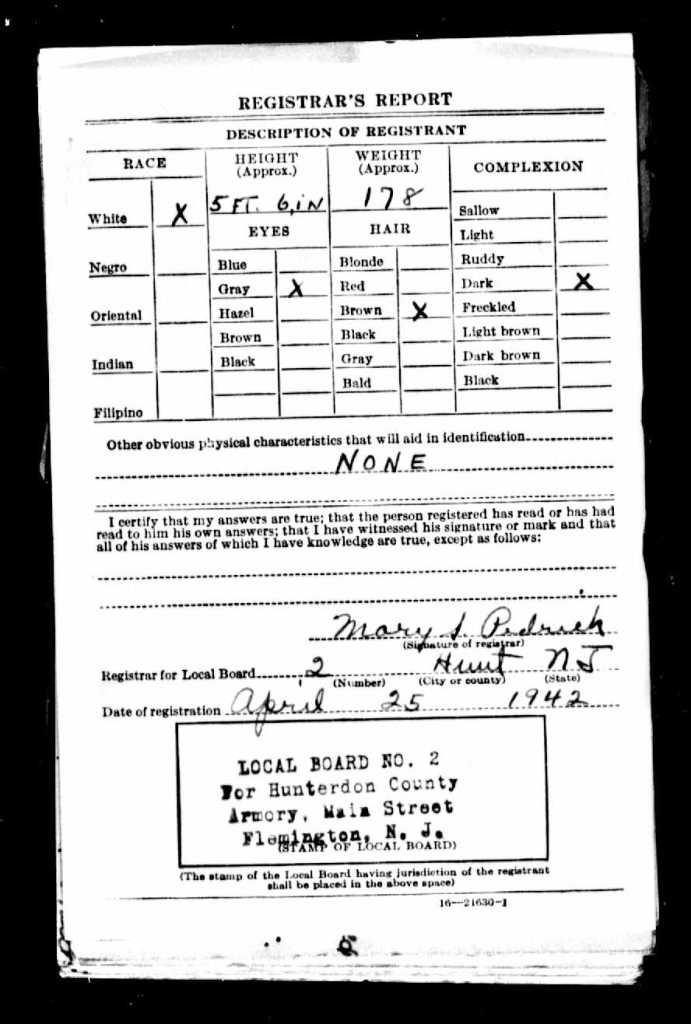 REGISTRAR'S REPORT
DESCRIPTION OF REGISTRANT
RACE
HEIGHT (Approx.)
WEIGHT (Approx.)
COMPLEXION
5 FT. 6, IN
178
White X
EYES
HAIR
Sallow
Light
Negro
Blue
Blonde
Ruddy
Gray X
Red
Dark X
Oriental
Hazel
Brown X
Freckled
Brown
Black
Light brown
Indian
Black
Gray
Dark brown
Bald
Black
Filipino
Other obvious physical characteristics that will aid in identification
NONE
I certify that my answers are true; that the person registered has read or has had
read to him his own answers; that I have witnessed his signature or mark and that
all of his answers of which I have knowledge are true, except as follows:
Mary S. Pedrick
(Signature of registrar)
Registrar for Local Board 2 Hunt NJ
(Number) (City or county) (State)
Date of registration April 25 1942
LOCAL BOARD NO. 2
For Hunterdon County
Armory, Main Street
Flemington, N. J.
(STAMP OF LOCAL BOARD)
(The stamp of the Local Board having jurisdiction of the registrant
shall be placed in the above space)
16—21630-1